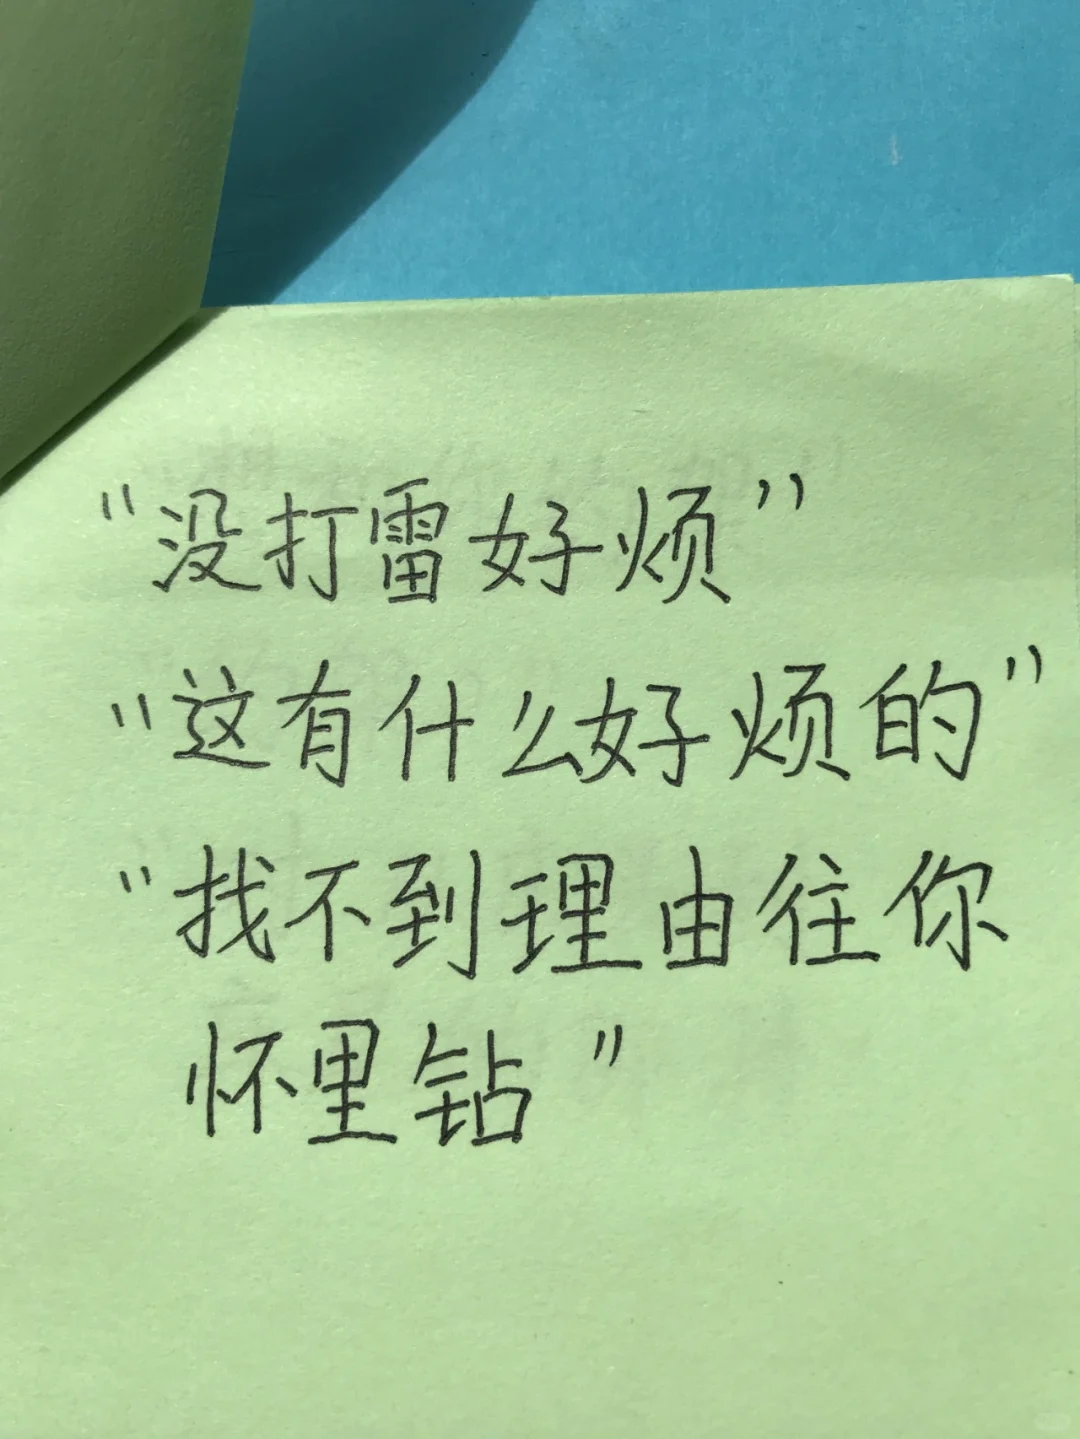 “没打雷好烦”
“这有什么好烦的”
“找不到理由往你
怀里钻”